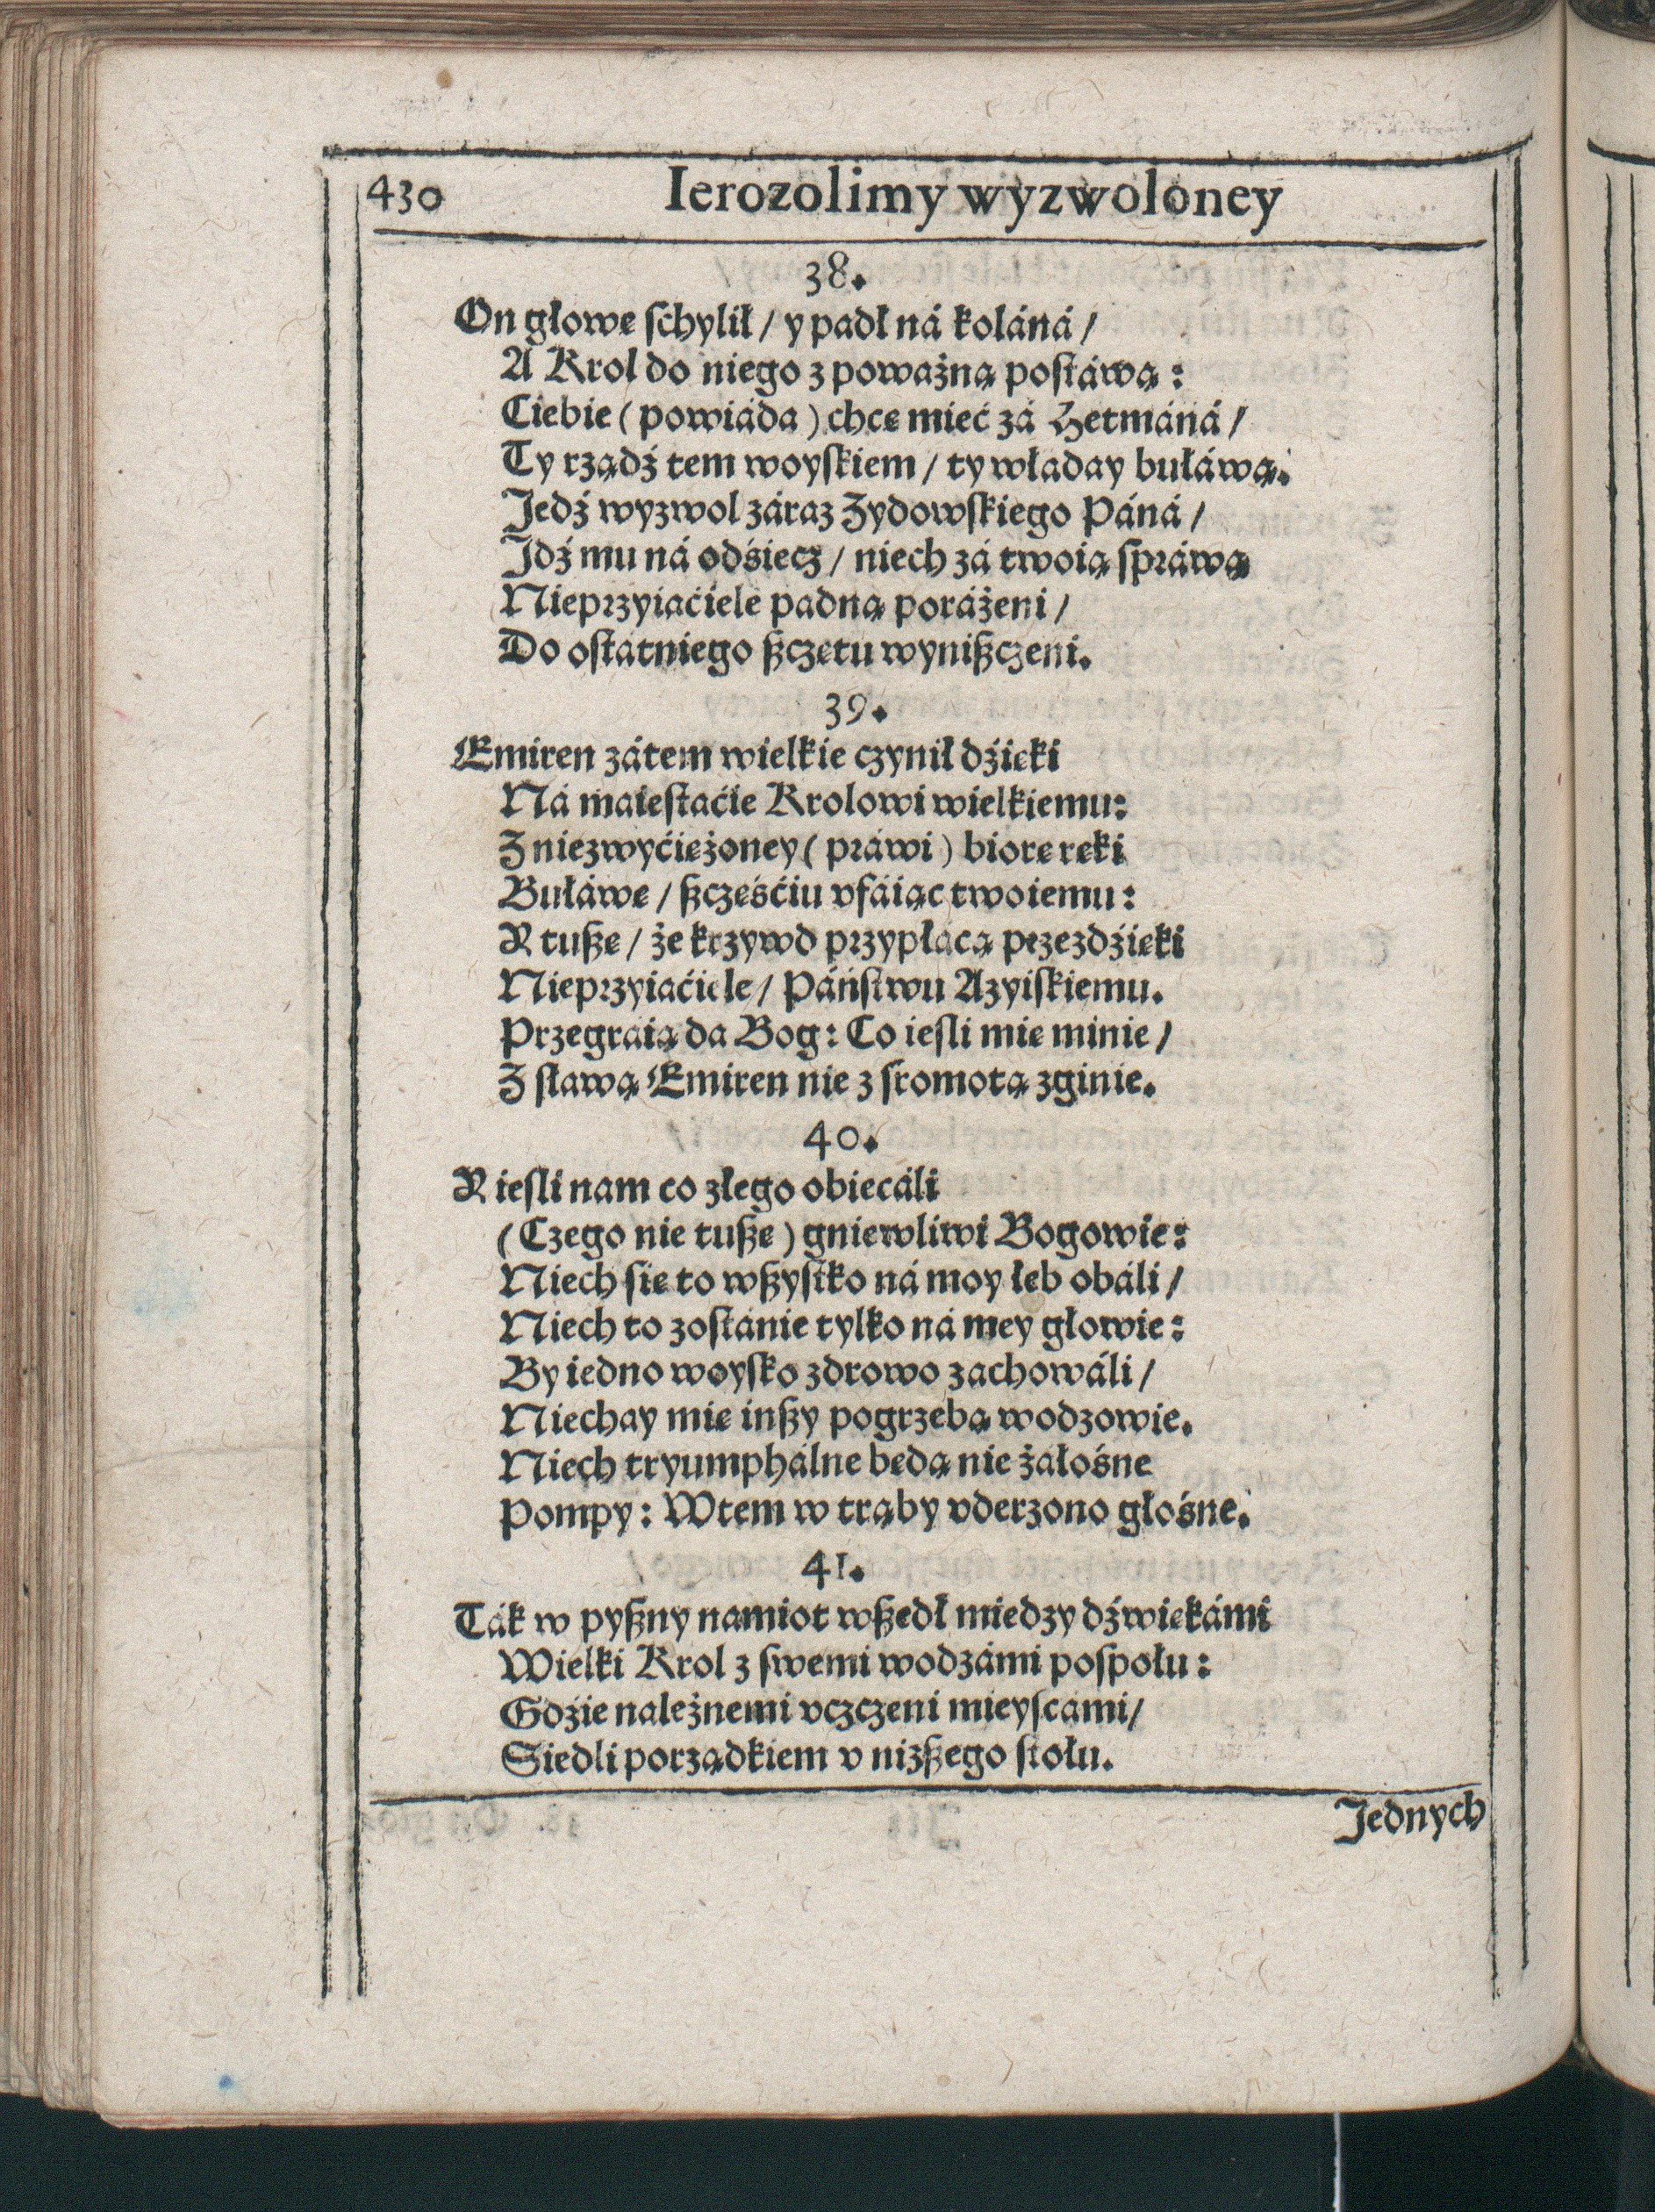 430 Ierozolimy wyzwoloney
38.
On głowę schylił / y padł ná koláná /
A Krol do niego z poważną postáwą:
Ciebie (powiáda) chcę mieć zá Hetmáná /
Ty rządź tem woyskiem / ty właday bułáwą.
Jedź wyzwol záraz Zydowskiego Páná /
Jdź mu ná odśiecz / niech zá twoią spráwą
Nieprzyiaćiele padną poráżeni /
Do ostátniego szczętu wyniszczeni.
39.
Emiren zátem wielkie czynił dźięki
Ná máiestaćie Krolowi wielkiemu:
Z niezwyćiężoney (práwi) biorę ręki
Bułáwę / szczęśćiu vfáiąc twoiemu:
Y tuszę / że krzywd przypłacą przez dźięki
Nieprzyiaćiele / Páństwu Azyiskiemu.
Przegraią da Bog: Co iesli mię minie /
Z sławą Emiren nie z sromotą zginie.
40.
Y iesli nam co złego obiecáli
(Czego nie tuszę) gniewliwi Bogowie:
Niech się to wszystko ná moy łeb obáli /
Niech to zostánie tylko ná mey głowie:
By iedno woysko zdrowo zachowáli /
Niechay mię inszy pogrzebą wodzowie.
Niech tryumphálne będą nie żałośne
Pompy: Wtem w trąby vderzono głośne.
41.
Ták w pyszny namiot wszedł między dźwiękámi
Wielki Krol z swemi wodzámi pospołu:
Gdzie należnemi vczczeni mieyscami /
Siedli porządkiem v nizszego stołu.
Jednych